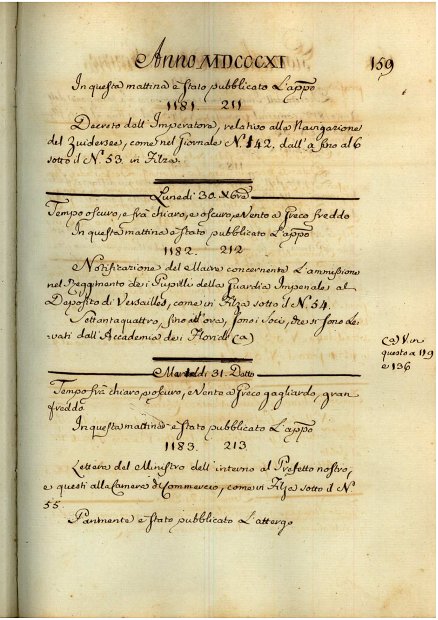 Anno MDCCCXI
159
In questa mattina è stato pubblicato L'appo
1181. 211
Decreto dell'Imperatore, relativo alla Navigazione
del Zuidersee, come nel Giornale N. 142. dall'a fino al 6
sotto il N. 53. in Filza.
Lunedì 30. Xbre
Tempo oscuro, e frà chiaro, e oscuro, e Vento a Greco freddo
In questa mattina è stato pubblicato L'appo
1182. 212
Notificazione del Maire concernente L'ammissione
nel Reggimento dei Pupilli della Guardia Imperiale al
Deposito di Versailles, come in Filza sotto il N. 54.
Settantaquattro, fino all'ora, sono i Socj, che si sono le-
vati dall'Accademia dei Floridi (a)
(a) V. in
questo a 119
e 136
Martedì 31. Detto
Tempo frà chiaro, e oscuro, e Vento a Greco gagliardo, gran
freddo.
In questa mattina è stato pubblicato L'appo
1183. 213.
Lettera del Ministro dell'interno al Prefetto nostro,
e questi alla Camera di Commercio, come in Filza sotto il N.
55
Parimente è stato pubblicato L'attergo